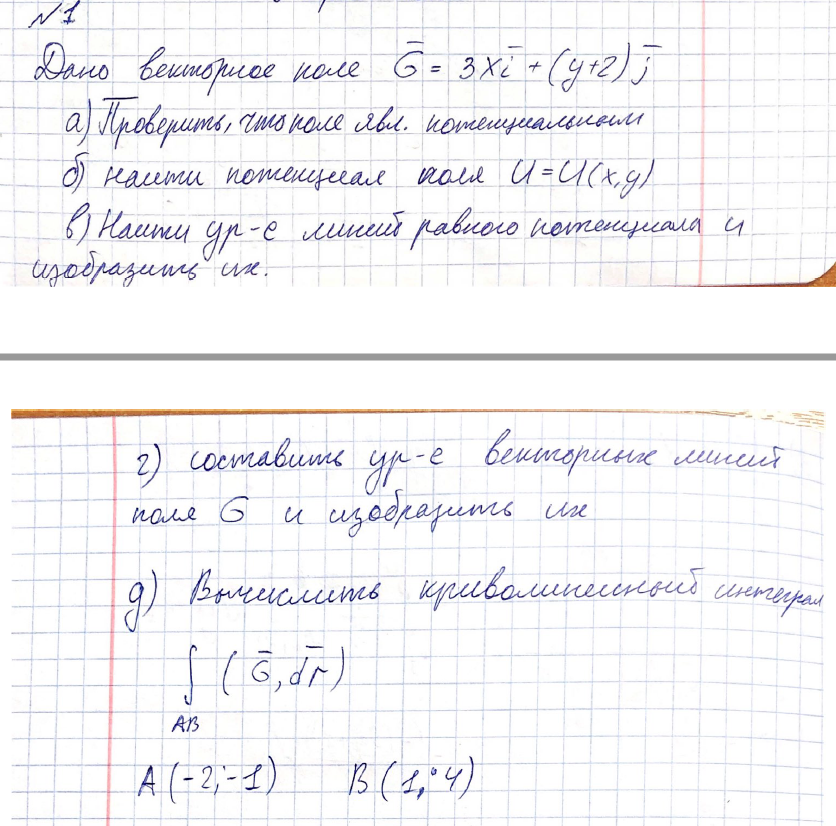 №1
Дано векторное поле G̅ = 3xi̅ + (y+2)j̅
а) Проверить, что поле явл. потенциальным
б) Найти потенциал поля U=U(x,y)
в) Найти ур-е линий равного потенциала и
изобразить их.
г) составить ур-е векторных линий
поля G и изобразить их
д) Вычислить криволинейный интеграл
∫ (G̅, dr̅)
AB
A(-2;-1) B(1;4)